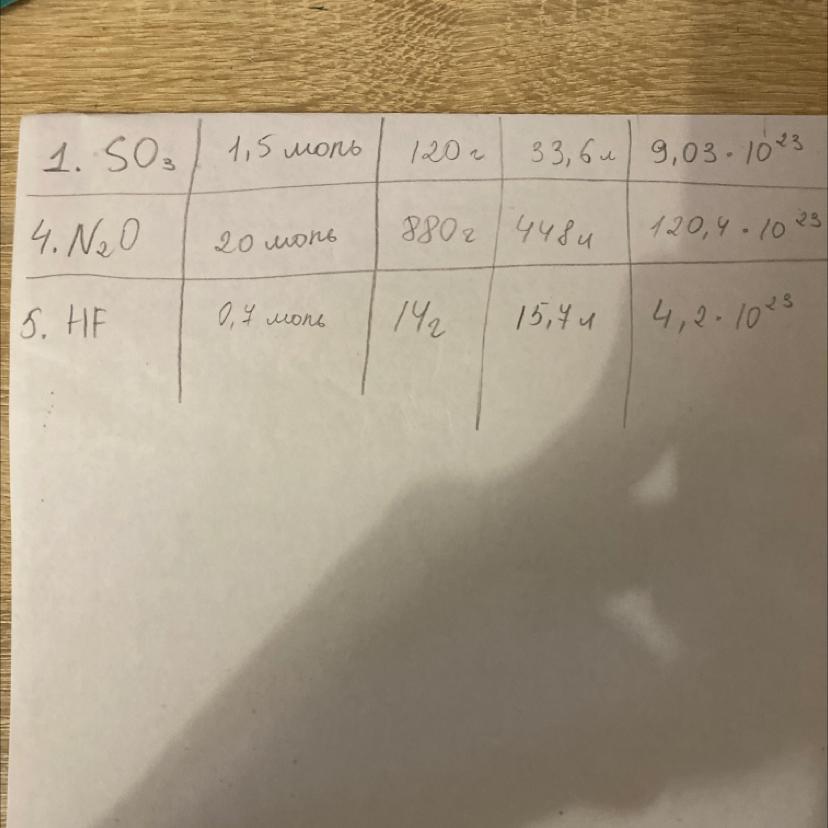 1. SO₃ 1,5 моль 120 г 33,6 л 9,03 · 10²³
4. N₂O 20 моль 880 г 448 л 120,4 · 10²³
5. HF 0,7 моль 14 г 15,7 л 4,2 · 10²³